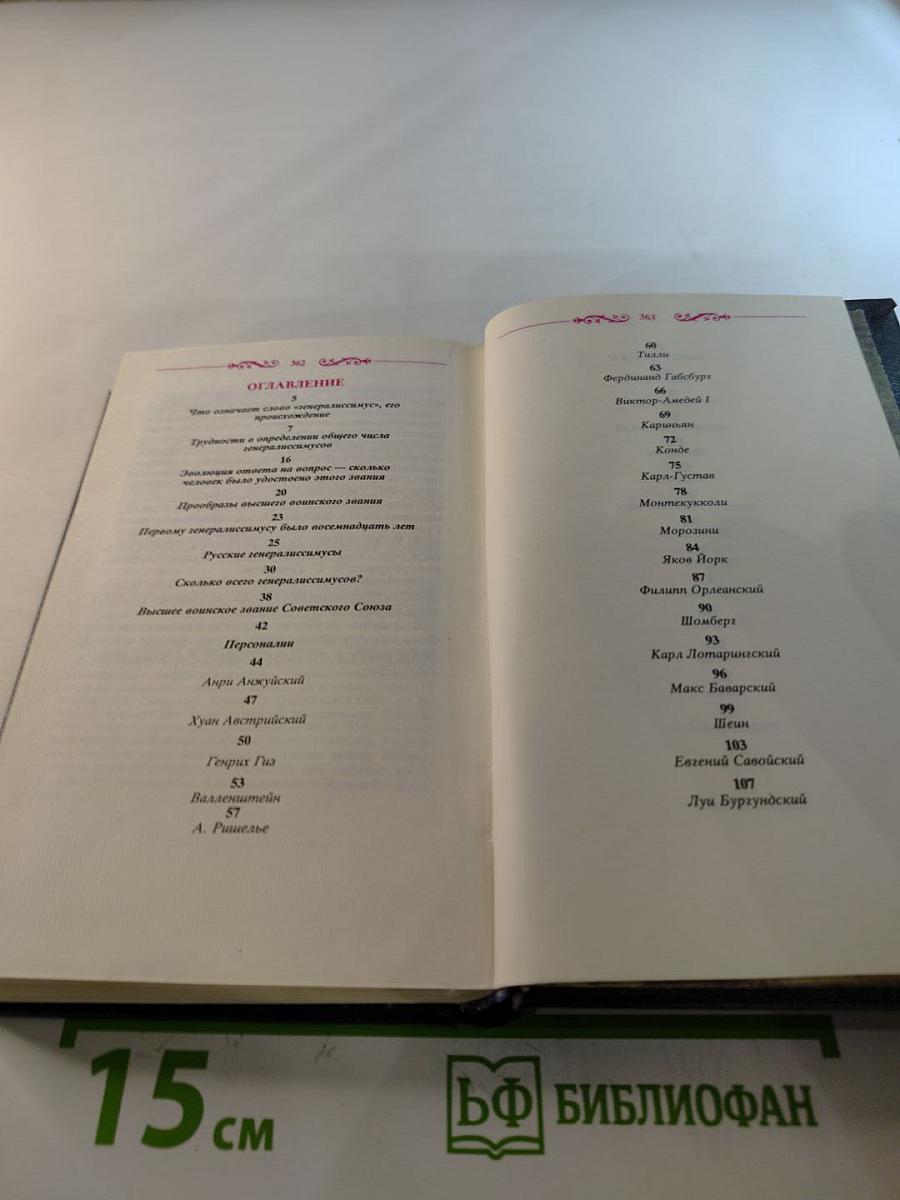 362
ОГЛАВЛЕНИЕ
5
Что означает слово «генералиссимус», его
происхождение
7
Трудности в определении общего числа
генералиссимусов
16
Эволюция ответа на вопрос — сколько
человек было удостоено этого звания
20
Прообразы высшего воинского звания
23
Первому генералиссимусу было восемнадцать лет
25
Русские генералиссимусы
30
Сколько всего генералиссимусов?
38
Высшее воинское звание Советского Союза
42
Персоналии
44
Анри Анжуйский
47
Хуан Австрийский
50
Генрих Гиз
53
Валленштейн
57
А. Ришелье
363
60
Тилли
63
Фердинанд Габсбург
66
Виктор-Амедей I
69
Кариньян
72
Конде
75
Карл-Густав
78
Монтекукколи
81
Морозини
84
Яков Йорк
87
Филипп Орлеанский
90
Шомберг
93
Карл Лотарингский
96
Макс Баварский
99
Шеин
103
Евгений Савойский
107
Луи Бургундский
15 см
БФ БИБЛИОФАН